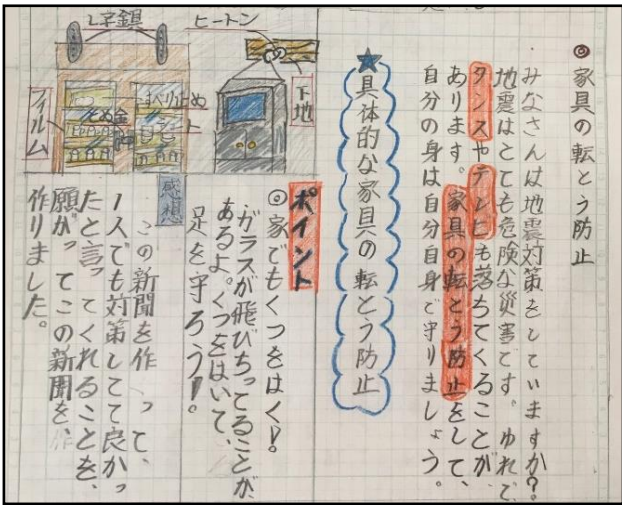 ◎家具の転とう防止
・みなさんは地震対策をしていますか?
地震はとても危険な災害です。ゆれで
タンスやテレビも落ちてくることが
あります。家具の転とう防止をして、
自分の身は自分自身で守りましょう。
★具体的な家具の転とう防止
ヒートン
下地
L字金具
フィルム
とめ金
すべり止め
シート
ポイント
◎家でもくつをはく!
ガラスが飛びちってることが
あるよ。くつをはいて、
足を守ろう!。
感想
この新聞を作って、
1人でも対策してて良かっ
たと言ってくれることを、
願がってこの新聞を、
作りました。